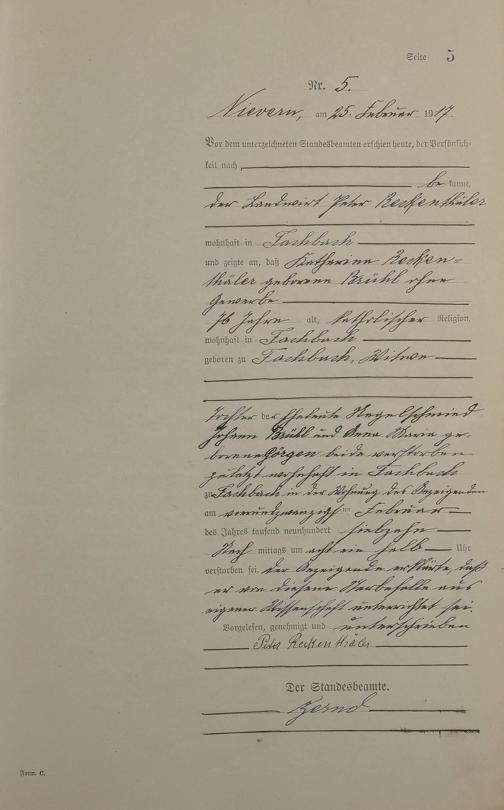 Seite 5
Nr. 5.
Nievern, am 25. Februar 1917.
Vor dem unterzeichneten Standesbeamten erschien heute, der Persönlich-
keit nach,
be kannt,
der Landwirt Peter Reckenthäler
wohnhaft in Fachbach
und zeigte an, daß Katharina Recken-
thäler geborene Brühl ohne
Gewerbe
76 Jahre alt, katholischer Religion,
wohnhaft in Fachbach
geboren zu Fachbach, Witwe
Tochter der Eheleute Nagelschmied
Johann Brühl und Anna Maria ge-
borene Görgen beide verstorben
zuletzt wohnhaft in Fachbach
zu Fachbach in der Wohnung des Anzeigenden
am vierundzwanzigsten Februar
des Jahres tausend neunhundert siebzehn
Nach mittags um acht ein halb Uhr
verstorben sei. Der Anzeigende erklärte, daß
er von diesem Sterbefalle aus
eigener Wissenschaft unterrichtet sei.
Vorgelesen, genehmigt und unterschrieben
Peter Reckenthäler
Der Standesbeamte.
Form. C.